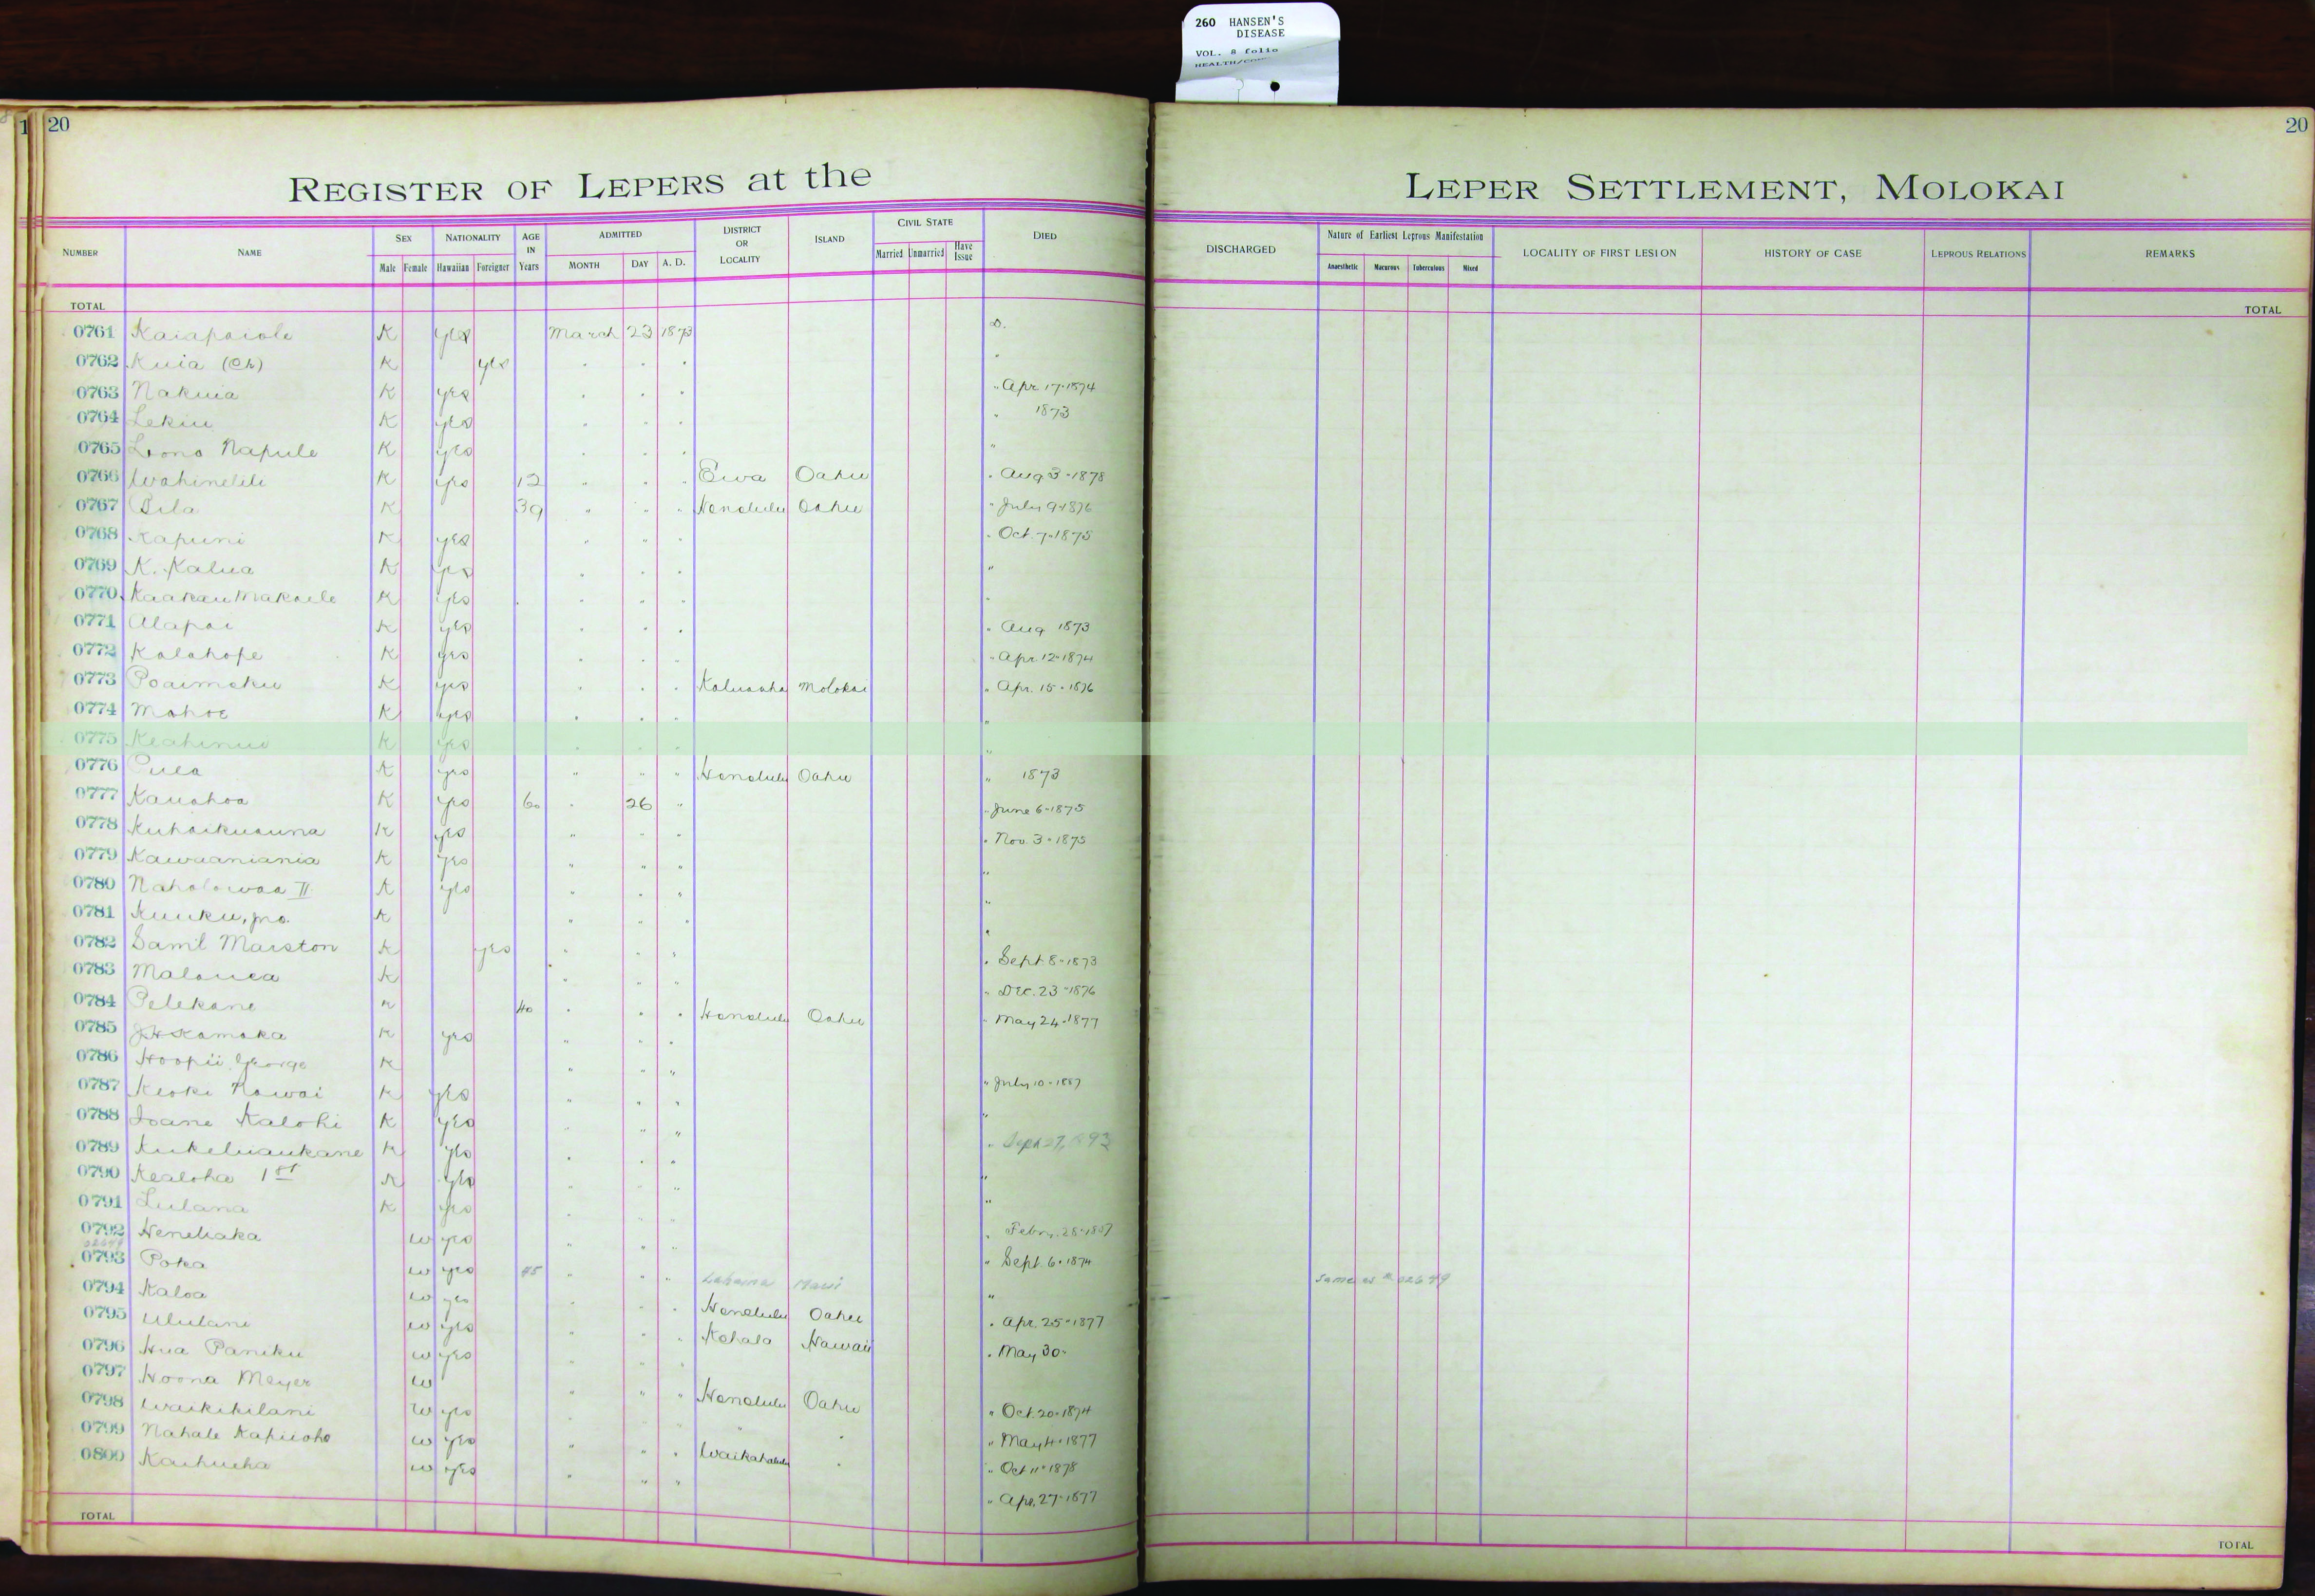 260 HANSEN'S
DISEASE
VOL. 8 folio
20
20
REGISTER OF LEPERS at the LEPER SETTLEMENT, MOLOKAI
NUMBER NAME SEX Male Female NATIONALITY Hawaiian Foreigner AGE IN Years ADMITTED MONTH DAY A. D. DISTRICT OR LOCALITY ISLAND CIVIL STATE Married Unmarried Have Issue DIED DISCHARGED Nature of Earliest Leprous Manifestation Anaesthetic Macurous Tuberculous Mixed LOCALITY OF FIRST LESION HISTORY OF CASE LEPROUS RELATIONS REMARKS
TOTAL TOTAL
0761 Kaiapaiole K yes March 23 1873 D.
0762 Kuia (Ch) K yes " " " "
0763 Nakuia K yes " " " " Apr. 17-1874
0764 Lekiu K yes " " " " 1873
0765 Lono Napule K yes " " " "
0766 Wahinelili K yes 12 " " " Ewa Oahu " Aug 3-1878
0767 Pila K 39 " " " Honolulu Oahu " July 9-1876
0768 Kapuni K yes " " " " Oct. 7-1875
0769 K. Kalua K yes " " " "
0770 Kaakau Makaele K yes " " " "
0771 Alapai K yes " " " " Aug 1873
0772 Kalahope K yes " " " " Apr. 12-1874
0773 Poaimoku K yes " " " Kaluaaha Molokai " Apr. 15-1876
0774 Mahoe K yes " " " "
0775 Keahinui K yes " " " "
0776 Pula K yes " " " Honolulu Oahu " 1873
0777 Kauahoa K yes 60 " 26 " " June 6-1875
0778 Kuhaikuauna K yes " " " " Nov. 3-1875
0779 Kawaaniania K yes " " " "
0780 Naholowaa II K yes " " " "
0781 Kuuku, jno. K " " " "
0782 Saml Marston K yes " " " " Sept 8-1873
0783 Malouea K " " " " Dec. 23-1876
0784 Pelekane K 40 " " " Honolulu Oahu " May 24-1877
0785 J.H. Kamaka K yes " " "
0786 Hoopii George K " " " " July 10-1887
0787 Keoki Nawai K yes " " " "
0788 Ioane Kalohi K yes " " " " Sept 27, 1893
0789 Kukeluaukane K yes " " " "
0790 Kealoha 1st K yes " " " "
0791 Lulana K yes " " " " Febr. 28-1887
0792 Heneliaka W yes " " " " Sept. 6-1874
02649
0793 Poka W yes 45 " " " Lahaina Maui " Same as # 02649
0794 Kaloa W yes " " " Honolulu Oahu " Apr. 25-1877
0795 Ululani W yes " " " Kohala Hawaii " May 30-
0796 Hua Paniku W yes " " "
0797 Hoona Meyer W " " " Honolulu Oahu " Oct. 20-1874
0798 Waikikilani W yes " " " " " " May 4-1877
0799 Nahale Kapuoho W yes " " " Waikahalulu " " Oct 11-1878
0800 Kaihueha W yes " " " " Apr. 27-1877
TOTAL TOTAL